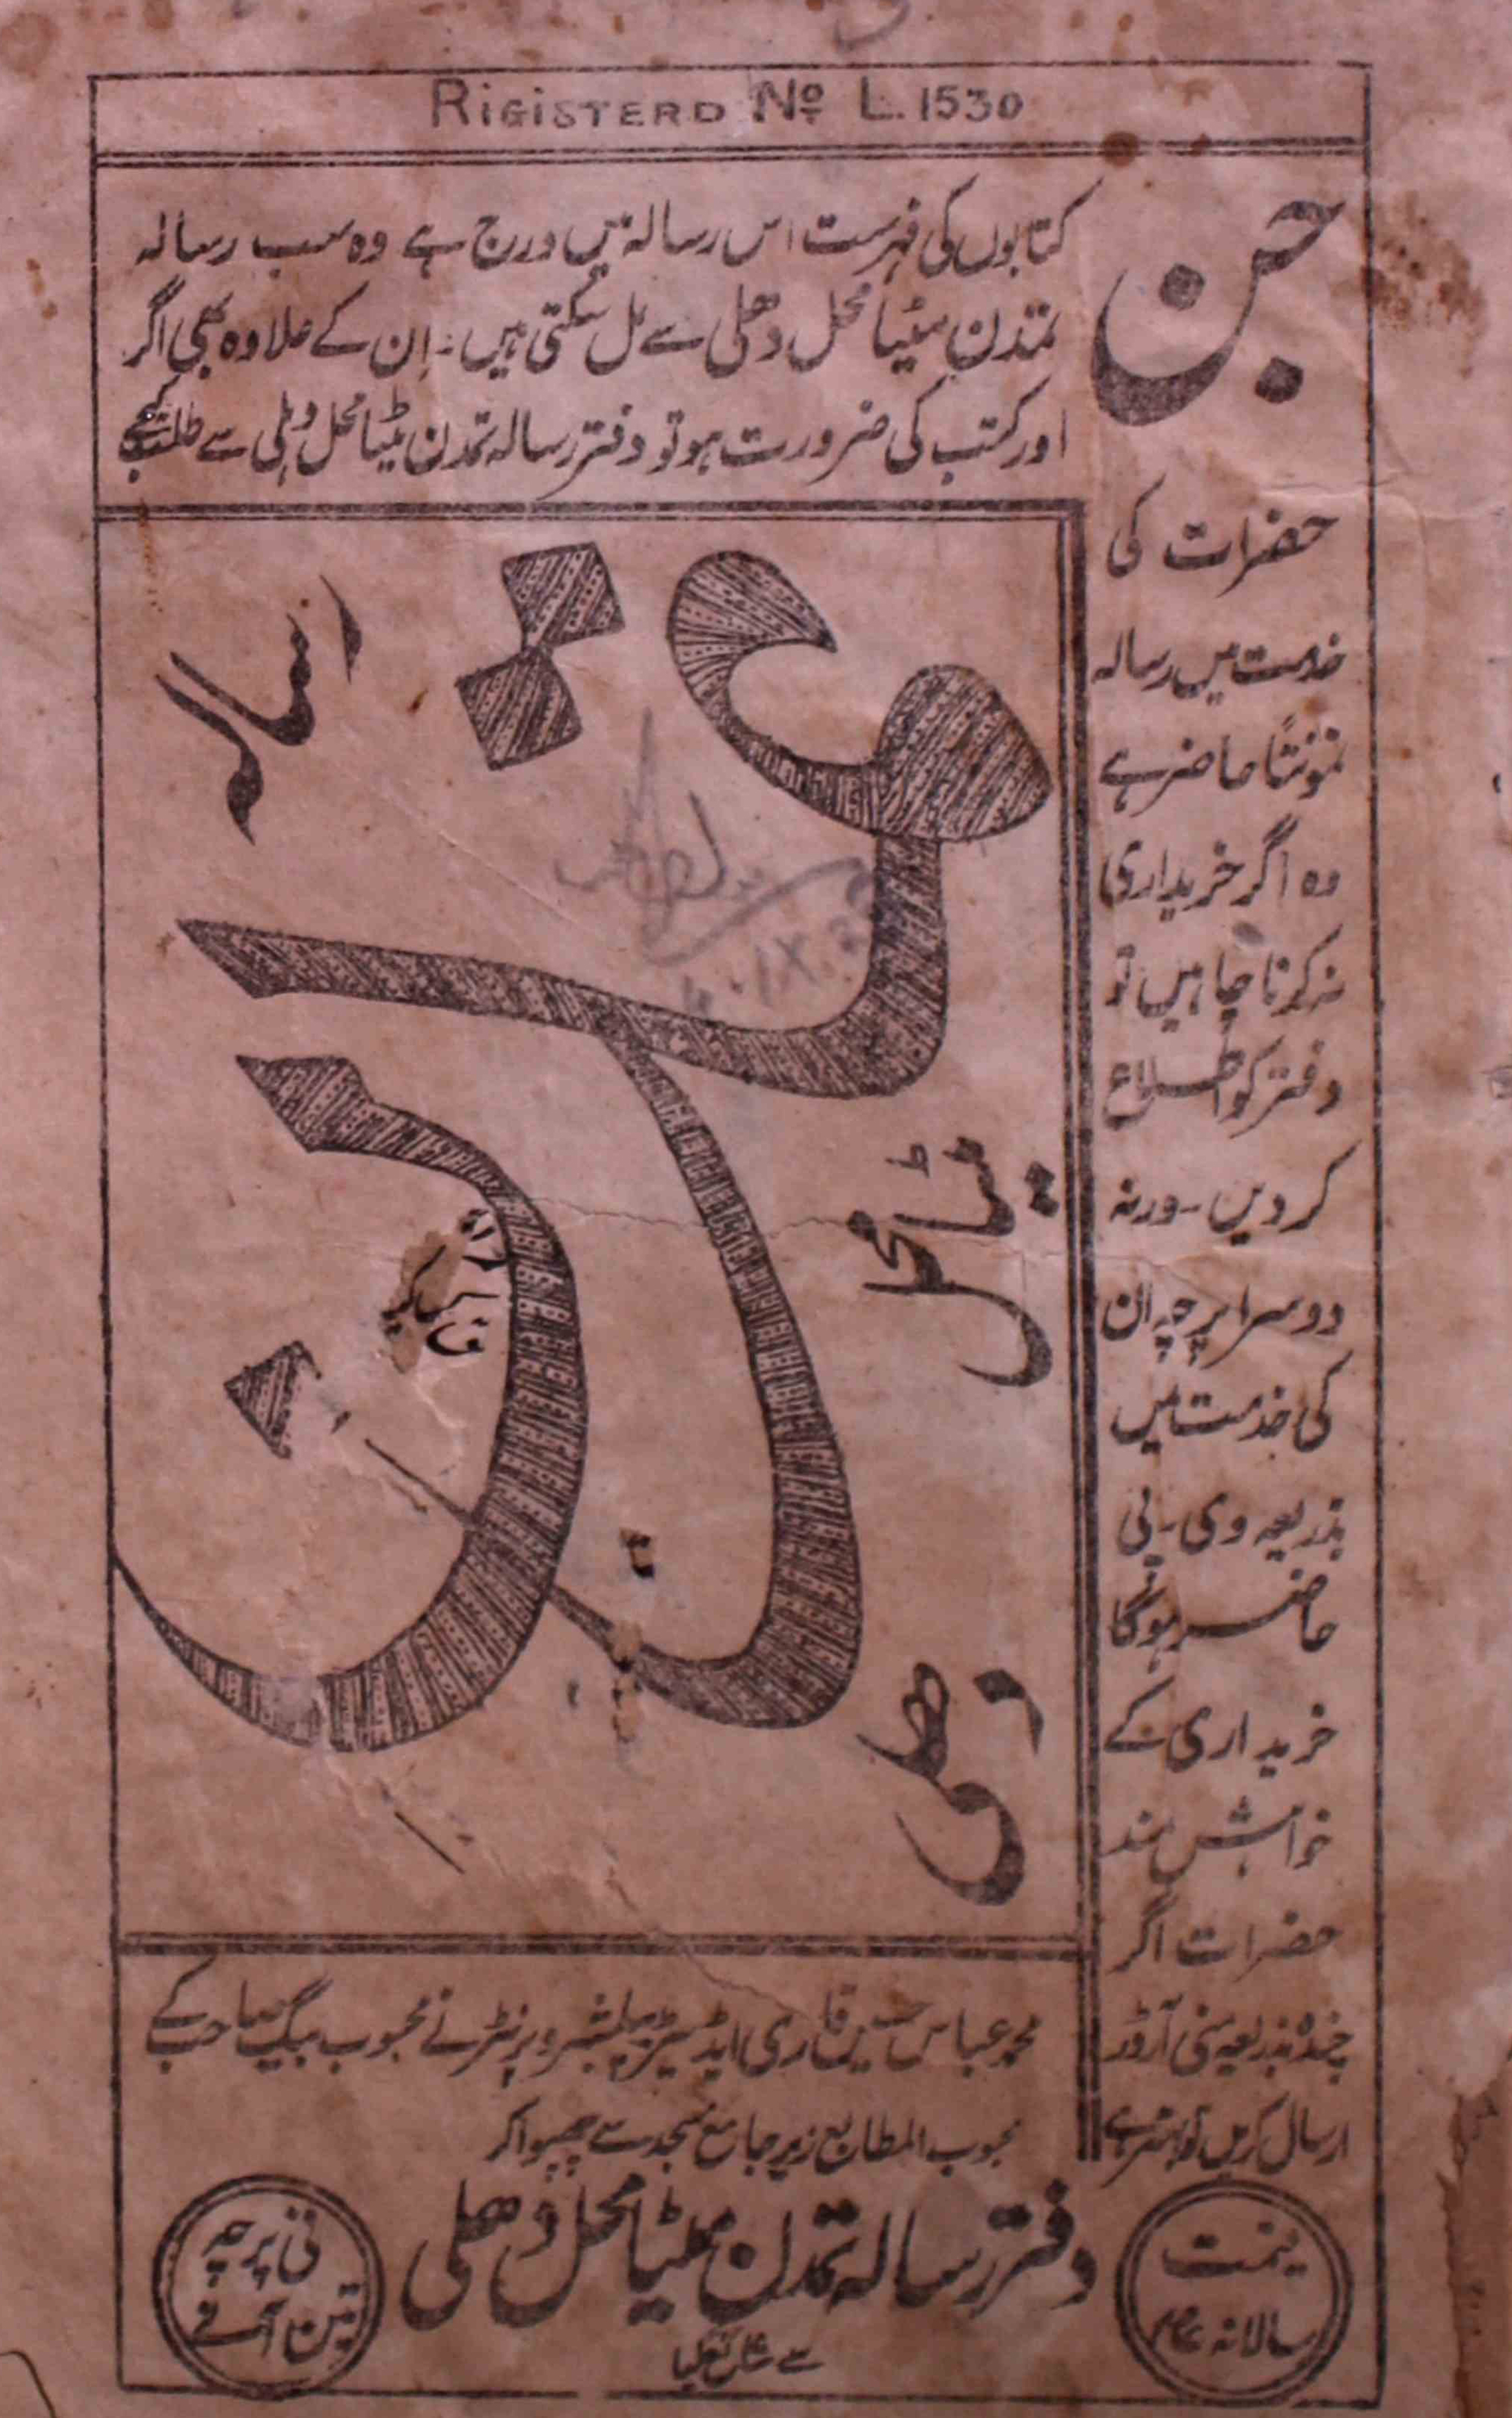 RIGISTERD No L. 1530
جن
کتابوں کی فہرست اس رسالہ میں درج ہے وہ سب رسالہ
تمدن مٹیا محل دھلی سے مل سکتی ہیں۔ اِن کے علاوہ بھی اگر
اور کتب کی ضرورت ہو تو دفتر رسالہ تمدن مٹیا محل دہلی سے طلب کیجے
حضرات کی
خدمت میں رسالہ
نمونتًا حاضر ہے
وہ اگر خریداری
نہ کرنا چاہیں تو
دفتر کو اطلاع
کر دیں۔ ورنہ
دوسرا پرچہ ان
کی خدمت میں
بذریعہ وی۔پی
حاضر ہوگا
خریداری کے
خواہش مند
حضرات اگر
چندہ بذریعہ منی آرڈر
ارسال کریں تو بہتر ہے
رسالہ
تمدن
مٹیا محل
دھلی
محمد عباس حسین قاری ایڈیٹر پبلشر و پرنٹر نے محبوب بیگ صاحب کے
محبوب المطابع زیر جامع مسجد سے چھپوا کر
دفتر رسالہ تمدن مٹیا محل دھلی
سے شائع کیا
قیمت
سالانہ
فی پرچہ
تین آنے